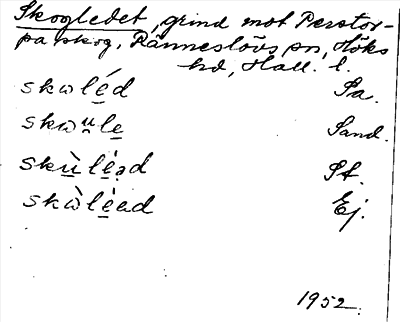 Skogledet, grind mot Perstor-
pa skog, Ränneslövs sn, Höks
hd, Hall. l.
skωlé̲d Sa.
skωu̲le̲ Sand.
skù̲lè̲ǝd St.
skὼlè̲ad Ej.
1952.